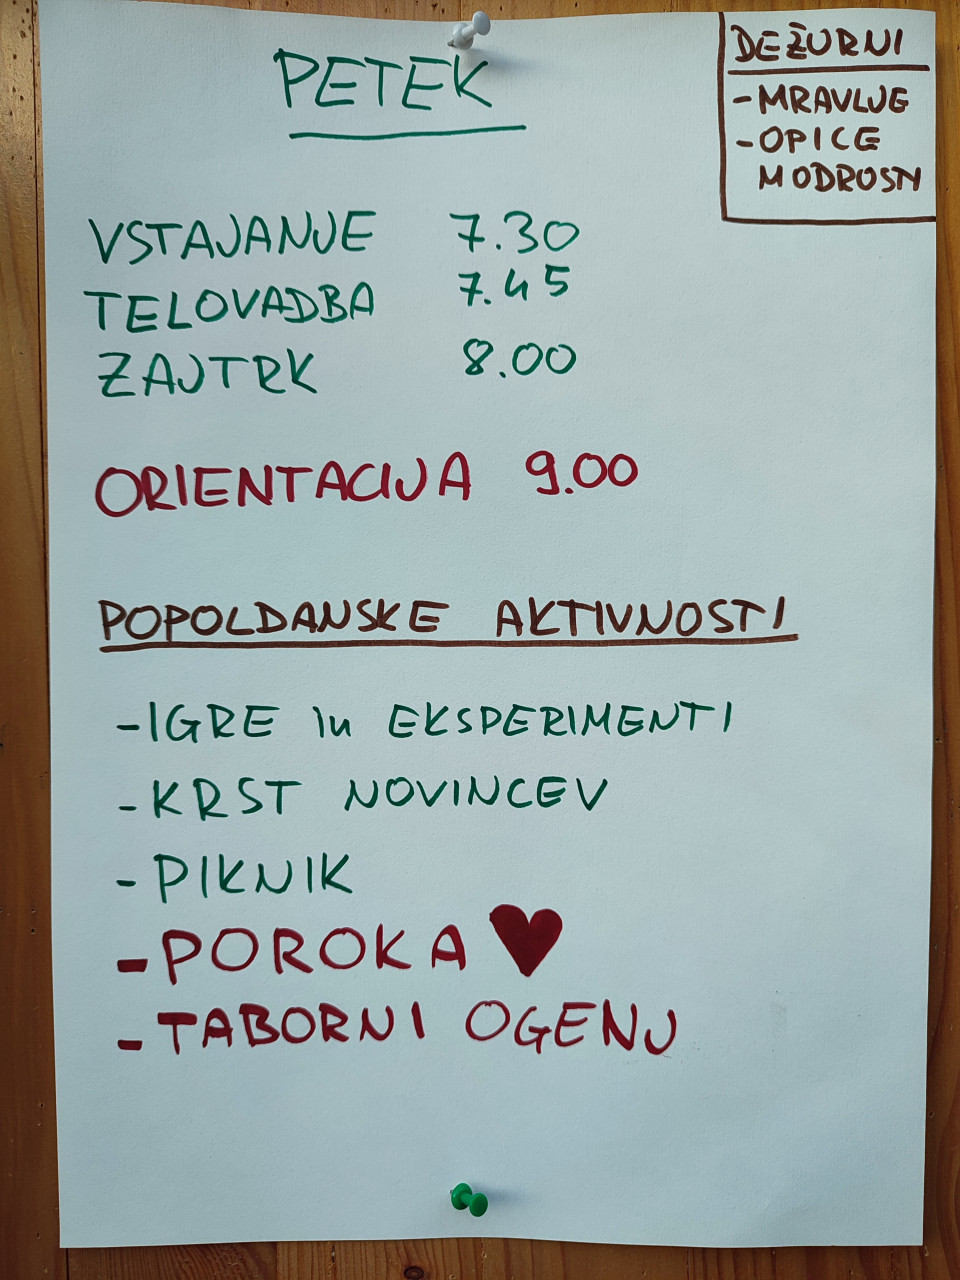 PETEK
DEŽURNI
-MRAVLJE
-OPICE
MODROSTI
VSTAJANJE 7.30
TELOVADBA 7.45
ZAJTRK 8.00
ORIENTACIJA 9.00
POPOLDANSKE AKTIVNOSTI
-IGRE in EKSPERIMENTI
-KRST NOVINCEV
-PIKNIK
-POROKA ♥
-TABORNI OGENJ